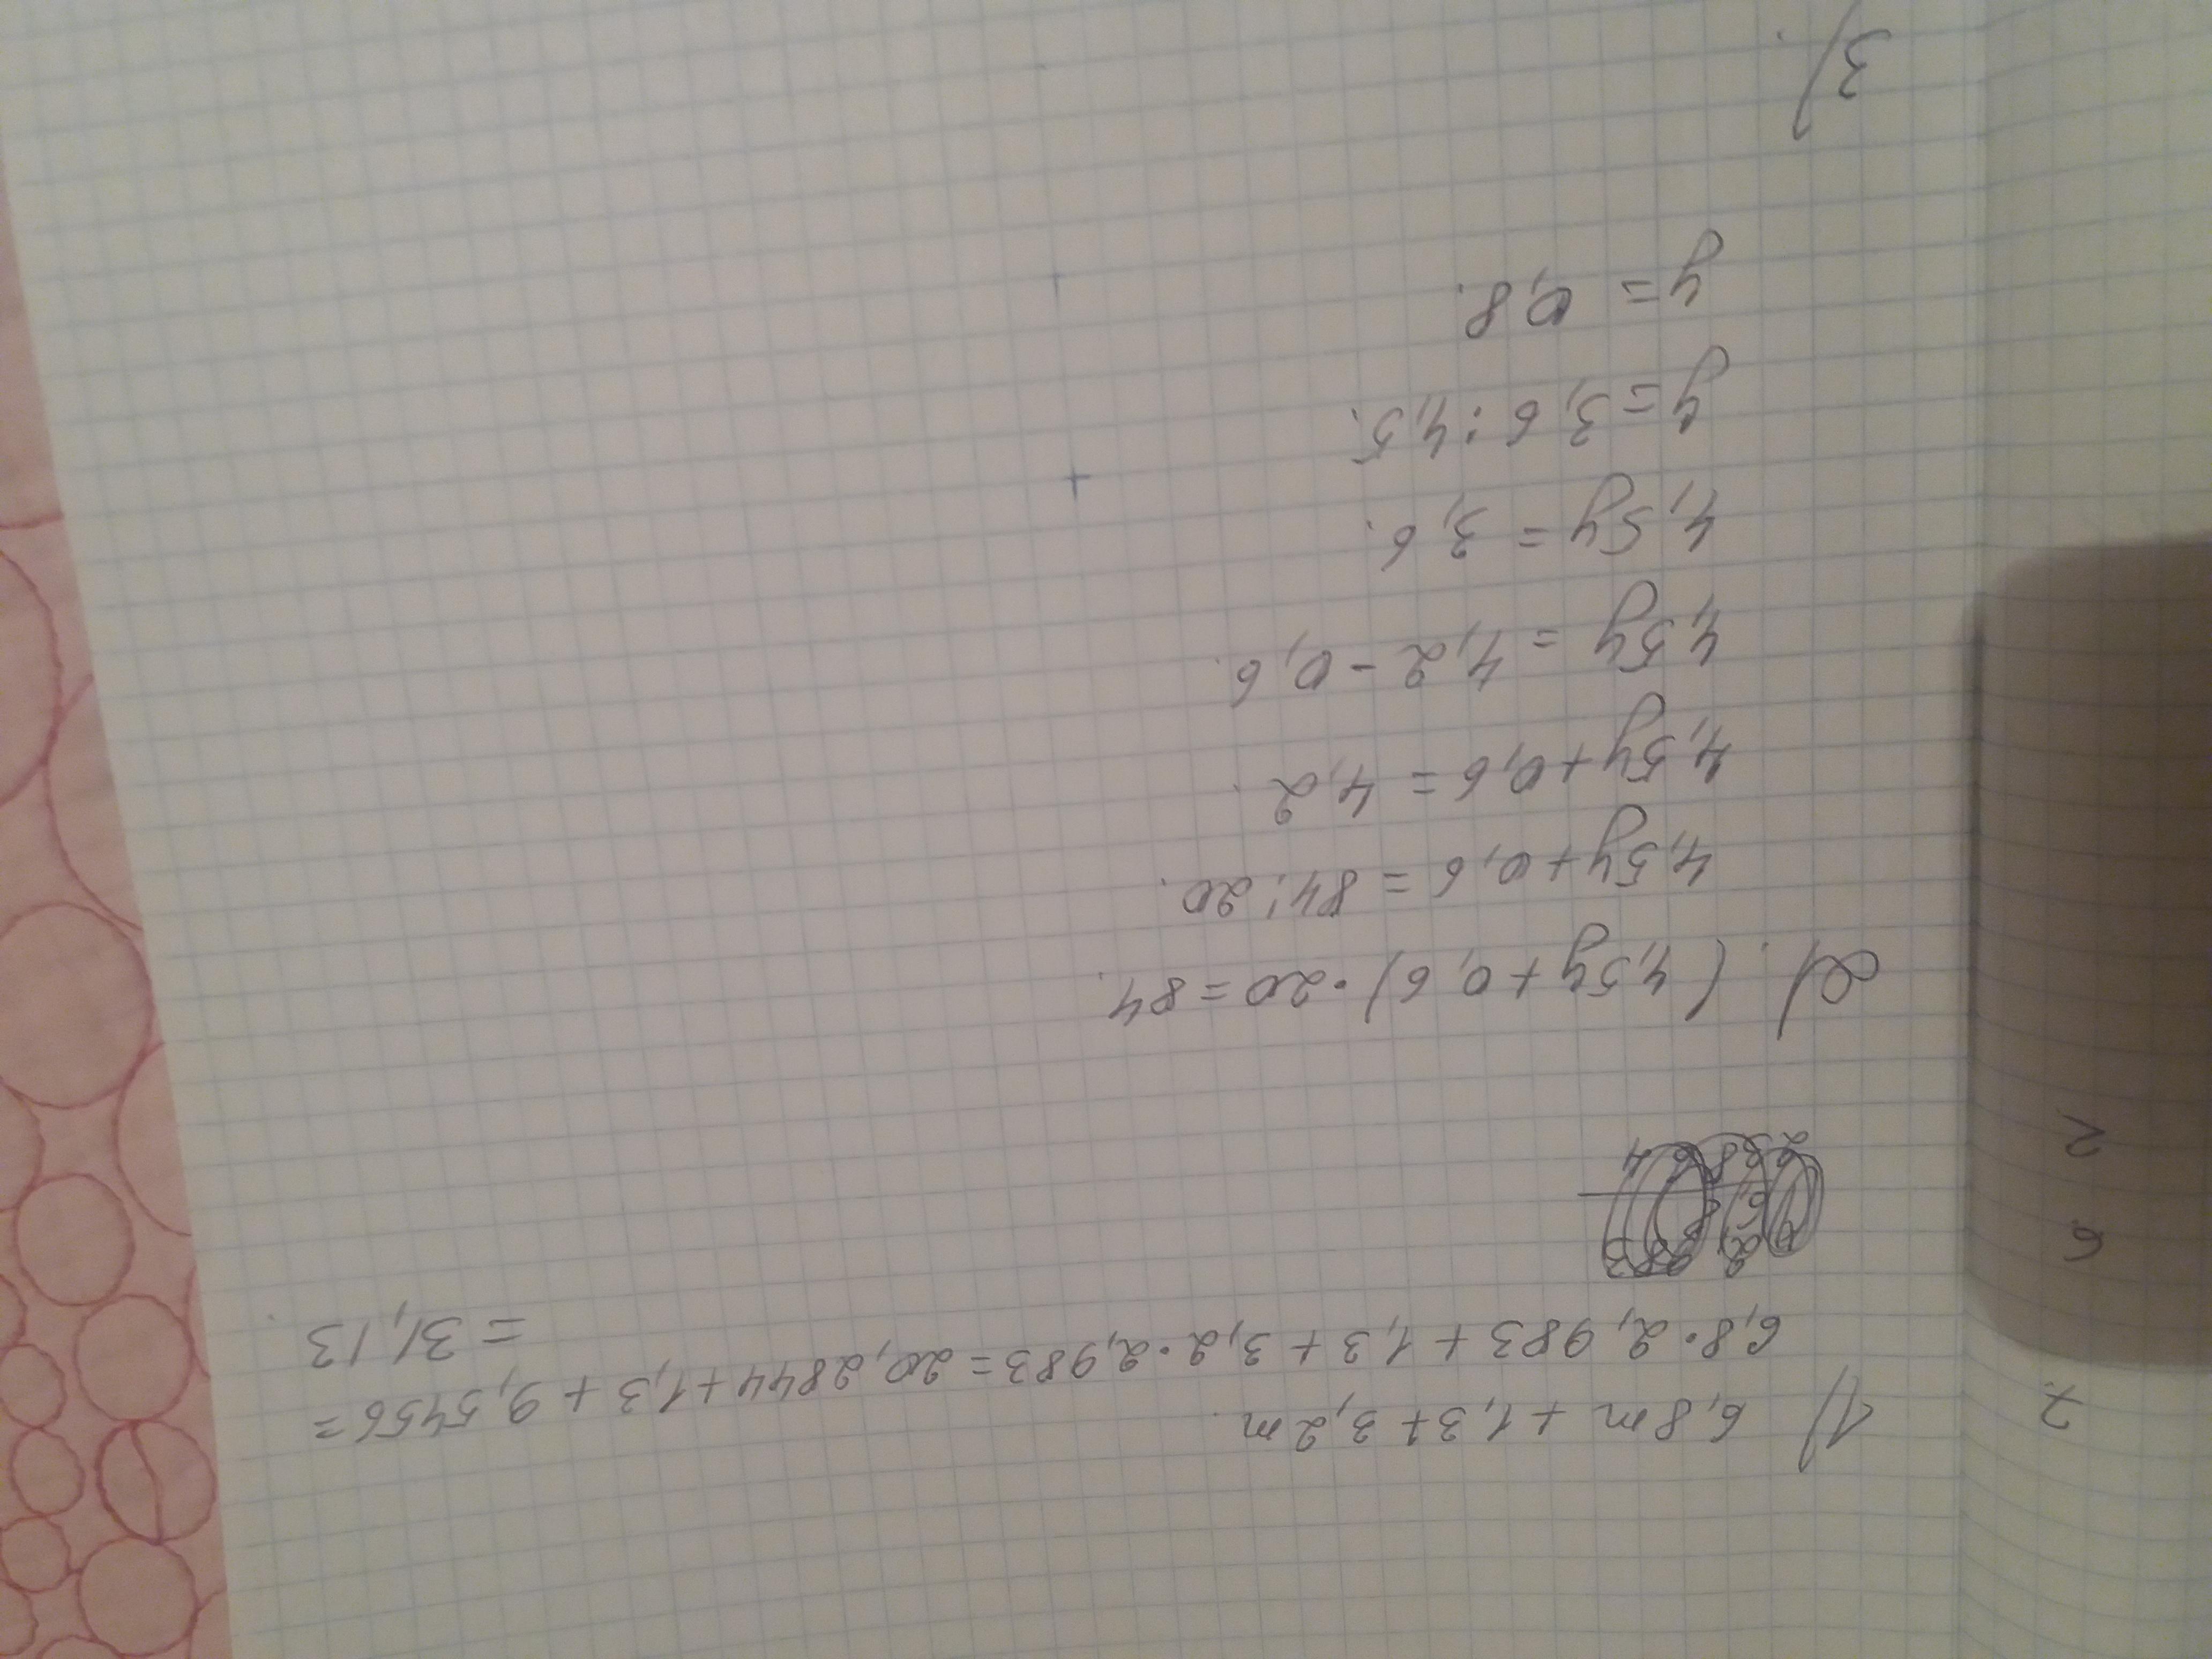 1) 6,8m + 1,3 + 3,2m.
6,8·2,983 + 1,3 + 3,2·2,983 = 20,2844 + 1,3 + 9,5456 =
= 31,13
2). (4,5y + 0,6)·20 = 84.
4,5y + 0,6 = 84:20.
4,5y + 0,6 = 4,2.
4,5y = 4,2 - 0,6.
4,5y = 3,6.
y = 3,6 : 4,5.
y = 0,8.
3).